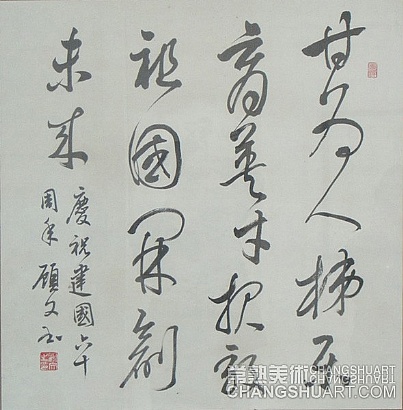 甘为人梯
育英才报效
祖國開創
未来
慶祝建國六十
周年顧文
常熟美術 CHANGSHUART
CHANGSHUART.COM